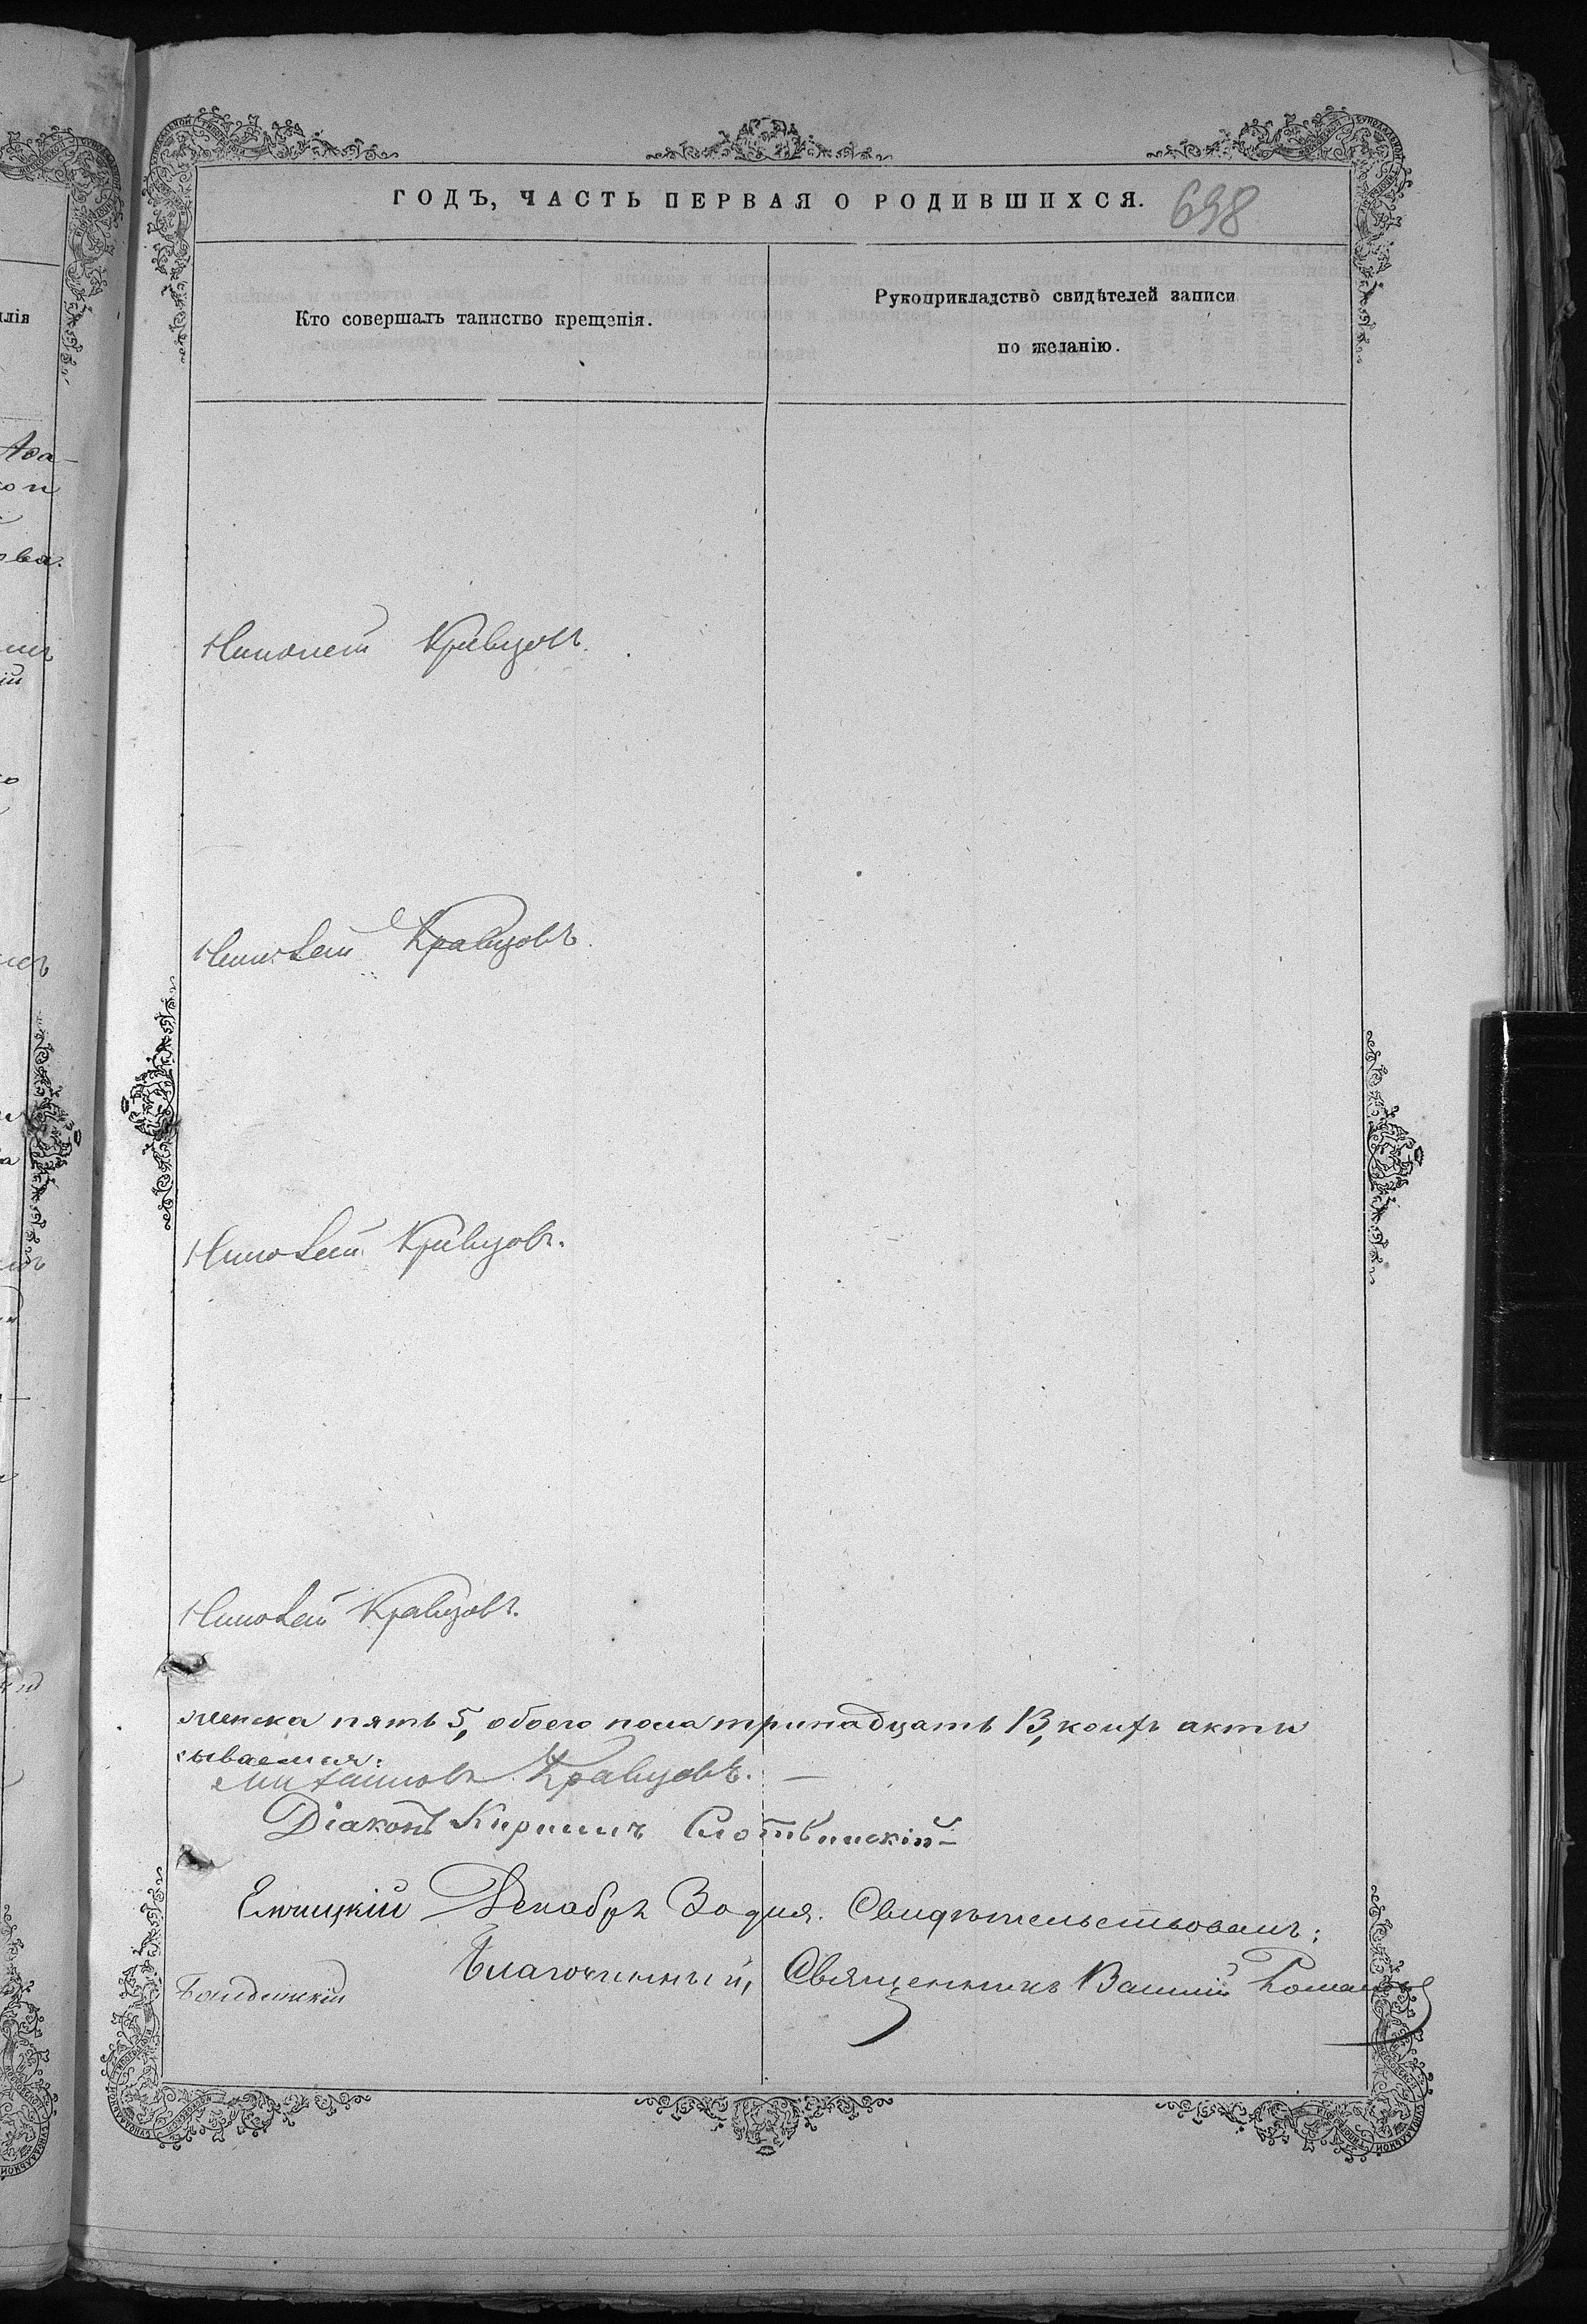 ГОДЪ, ЧАСТЬ ПЕРВАЯ О РОДИВШИХСЯ. 698
Кто совершалъ таинство крещенія.
Рукоприкладство свидѣтелей записи
по желанію.
Николай Кравцовъ.
Николай Кравцовъ.
Николай Кравцовъ.
Николай Кравцовъ.
женска пять 5, обоего пола тринадцать 13, коихъ акты
сываемся:
Михаиловъ Кравцовъ. —
Діаконъ Кириллъ
Декабря 30 дня. Свидѣтельствовалъ:
Благочинный, Священникъ